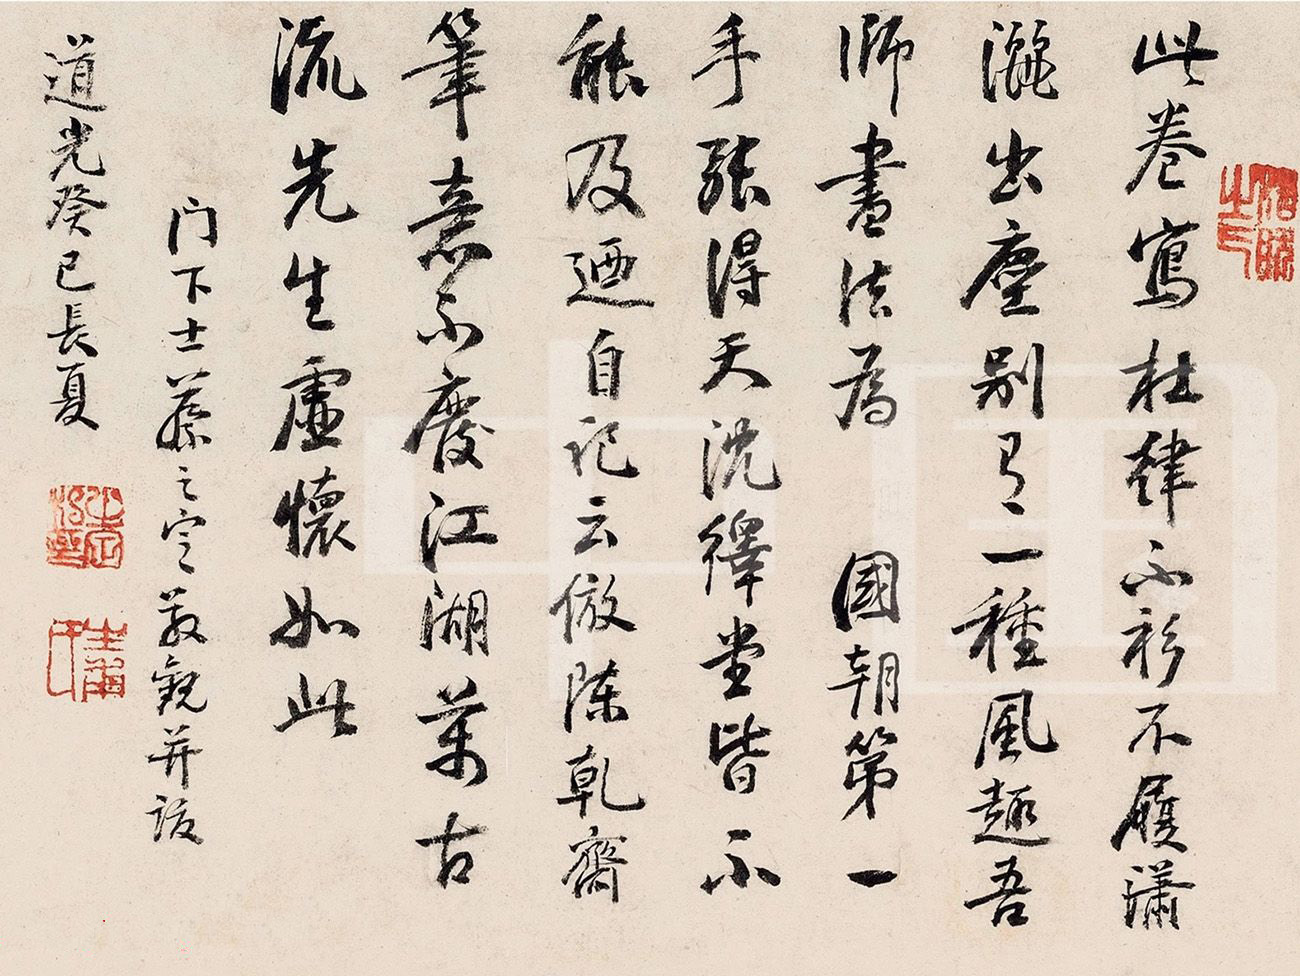 此卷寫杜律不衫不履瀟
灑出塵别有一種風趣吾
師書法為 國朝第一
手張得天沈繹堂皆不
能及迺自記云倣陳乾齋
筆意不廢江湖萬古
流先生虛懷如此
門下士蔡之定敬觀并跋
道光癸巳長夏